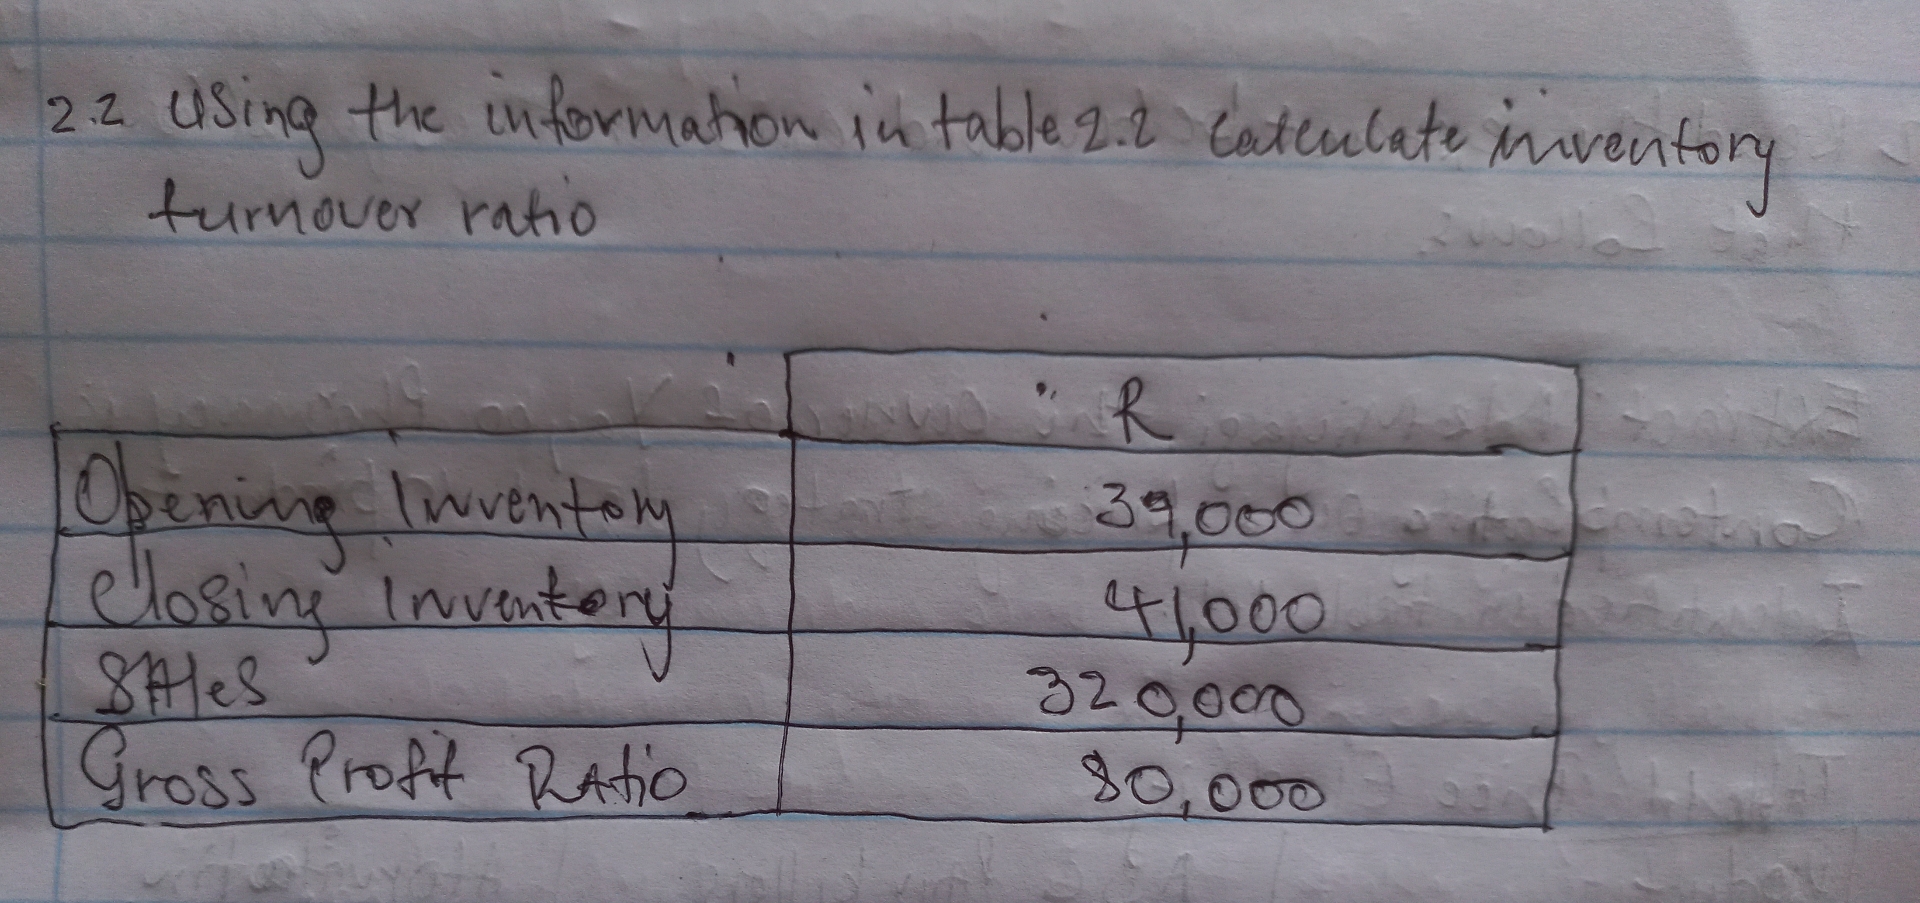 2.2 Using the information in table 2.2 Calculate inventory
turnover ratio
R
Opening Inventory 39,000
Closing Inventory 41,000
SAles 320,000
Gross Profit RAtio 80,000